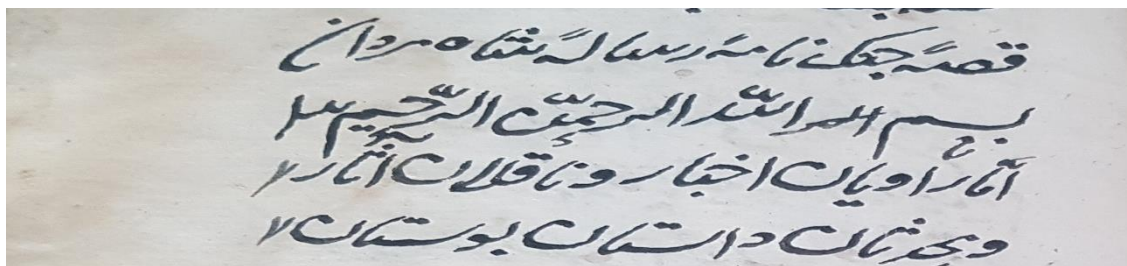 قصهٔ جنک نامهٔ رسالهٔ شاه مردان
بسم الله الرحمن الرحیم
راویان اخبار و ناقلان آثار
ومحدثان داستان بوستان